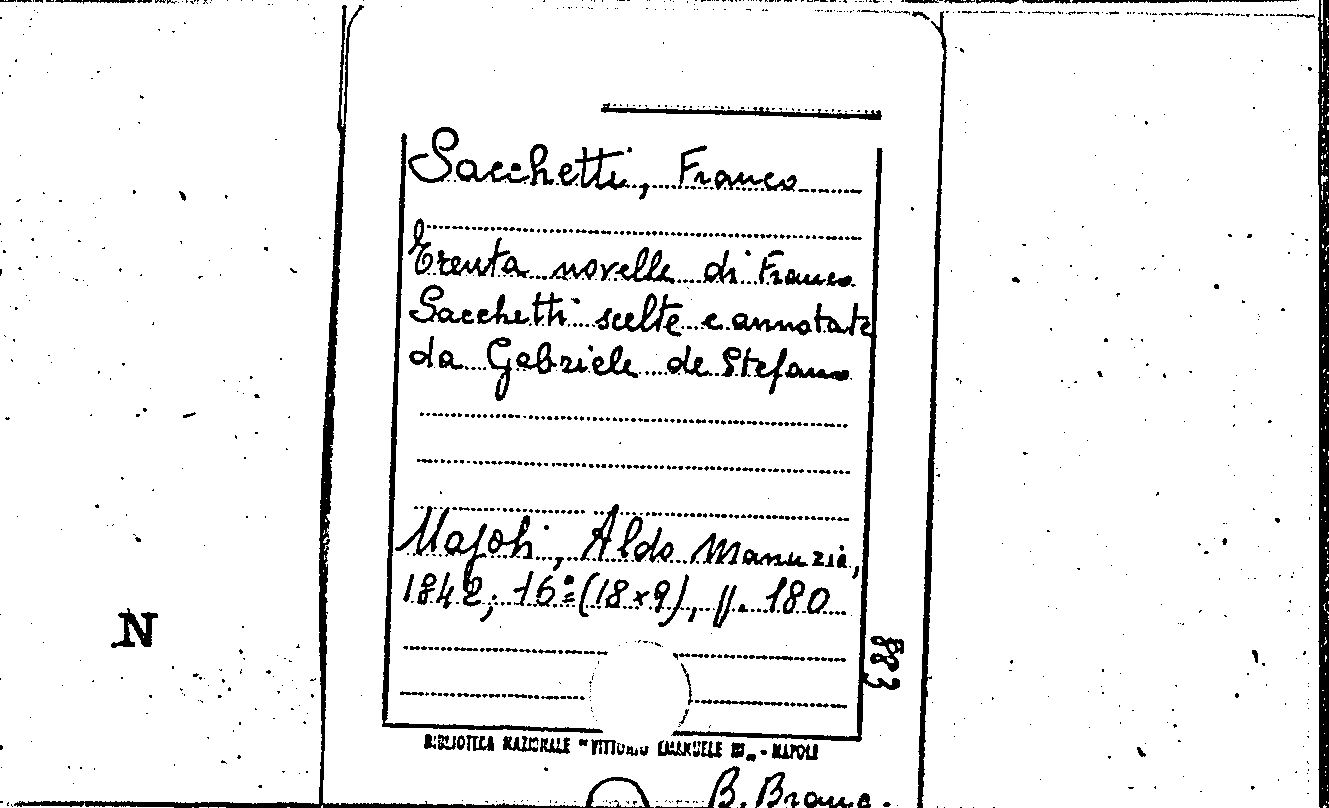 Sacchetti, Franco
Trenta novelle di Franco
Sacchetti scelte e annotate
da Gabriele de Stefano
Napoli, Aldo Manuzio,
1842; 16° (18x9), pp. 180
883
N
BIBLIOTECA NAZIONALE "VITTORIO EMANUELE III" - NAPOLI
B. Branc.